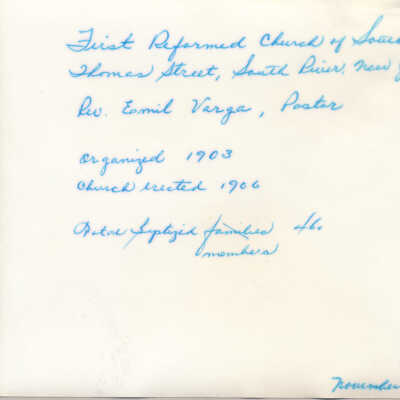 First Reformed Church of Sou
Thomas Street, South River, New
Rev. Esmil Varga, Pastor
Organized 1903
Church erected 1906
families 46
members
November